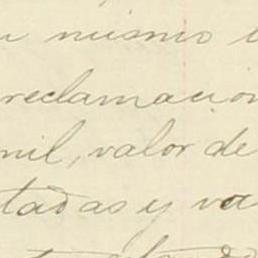 mismo
reclamacion
mil, valor de
tadas y va